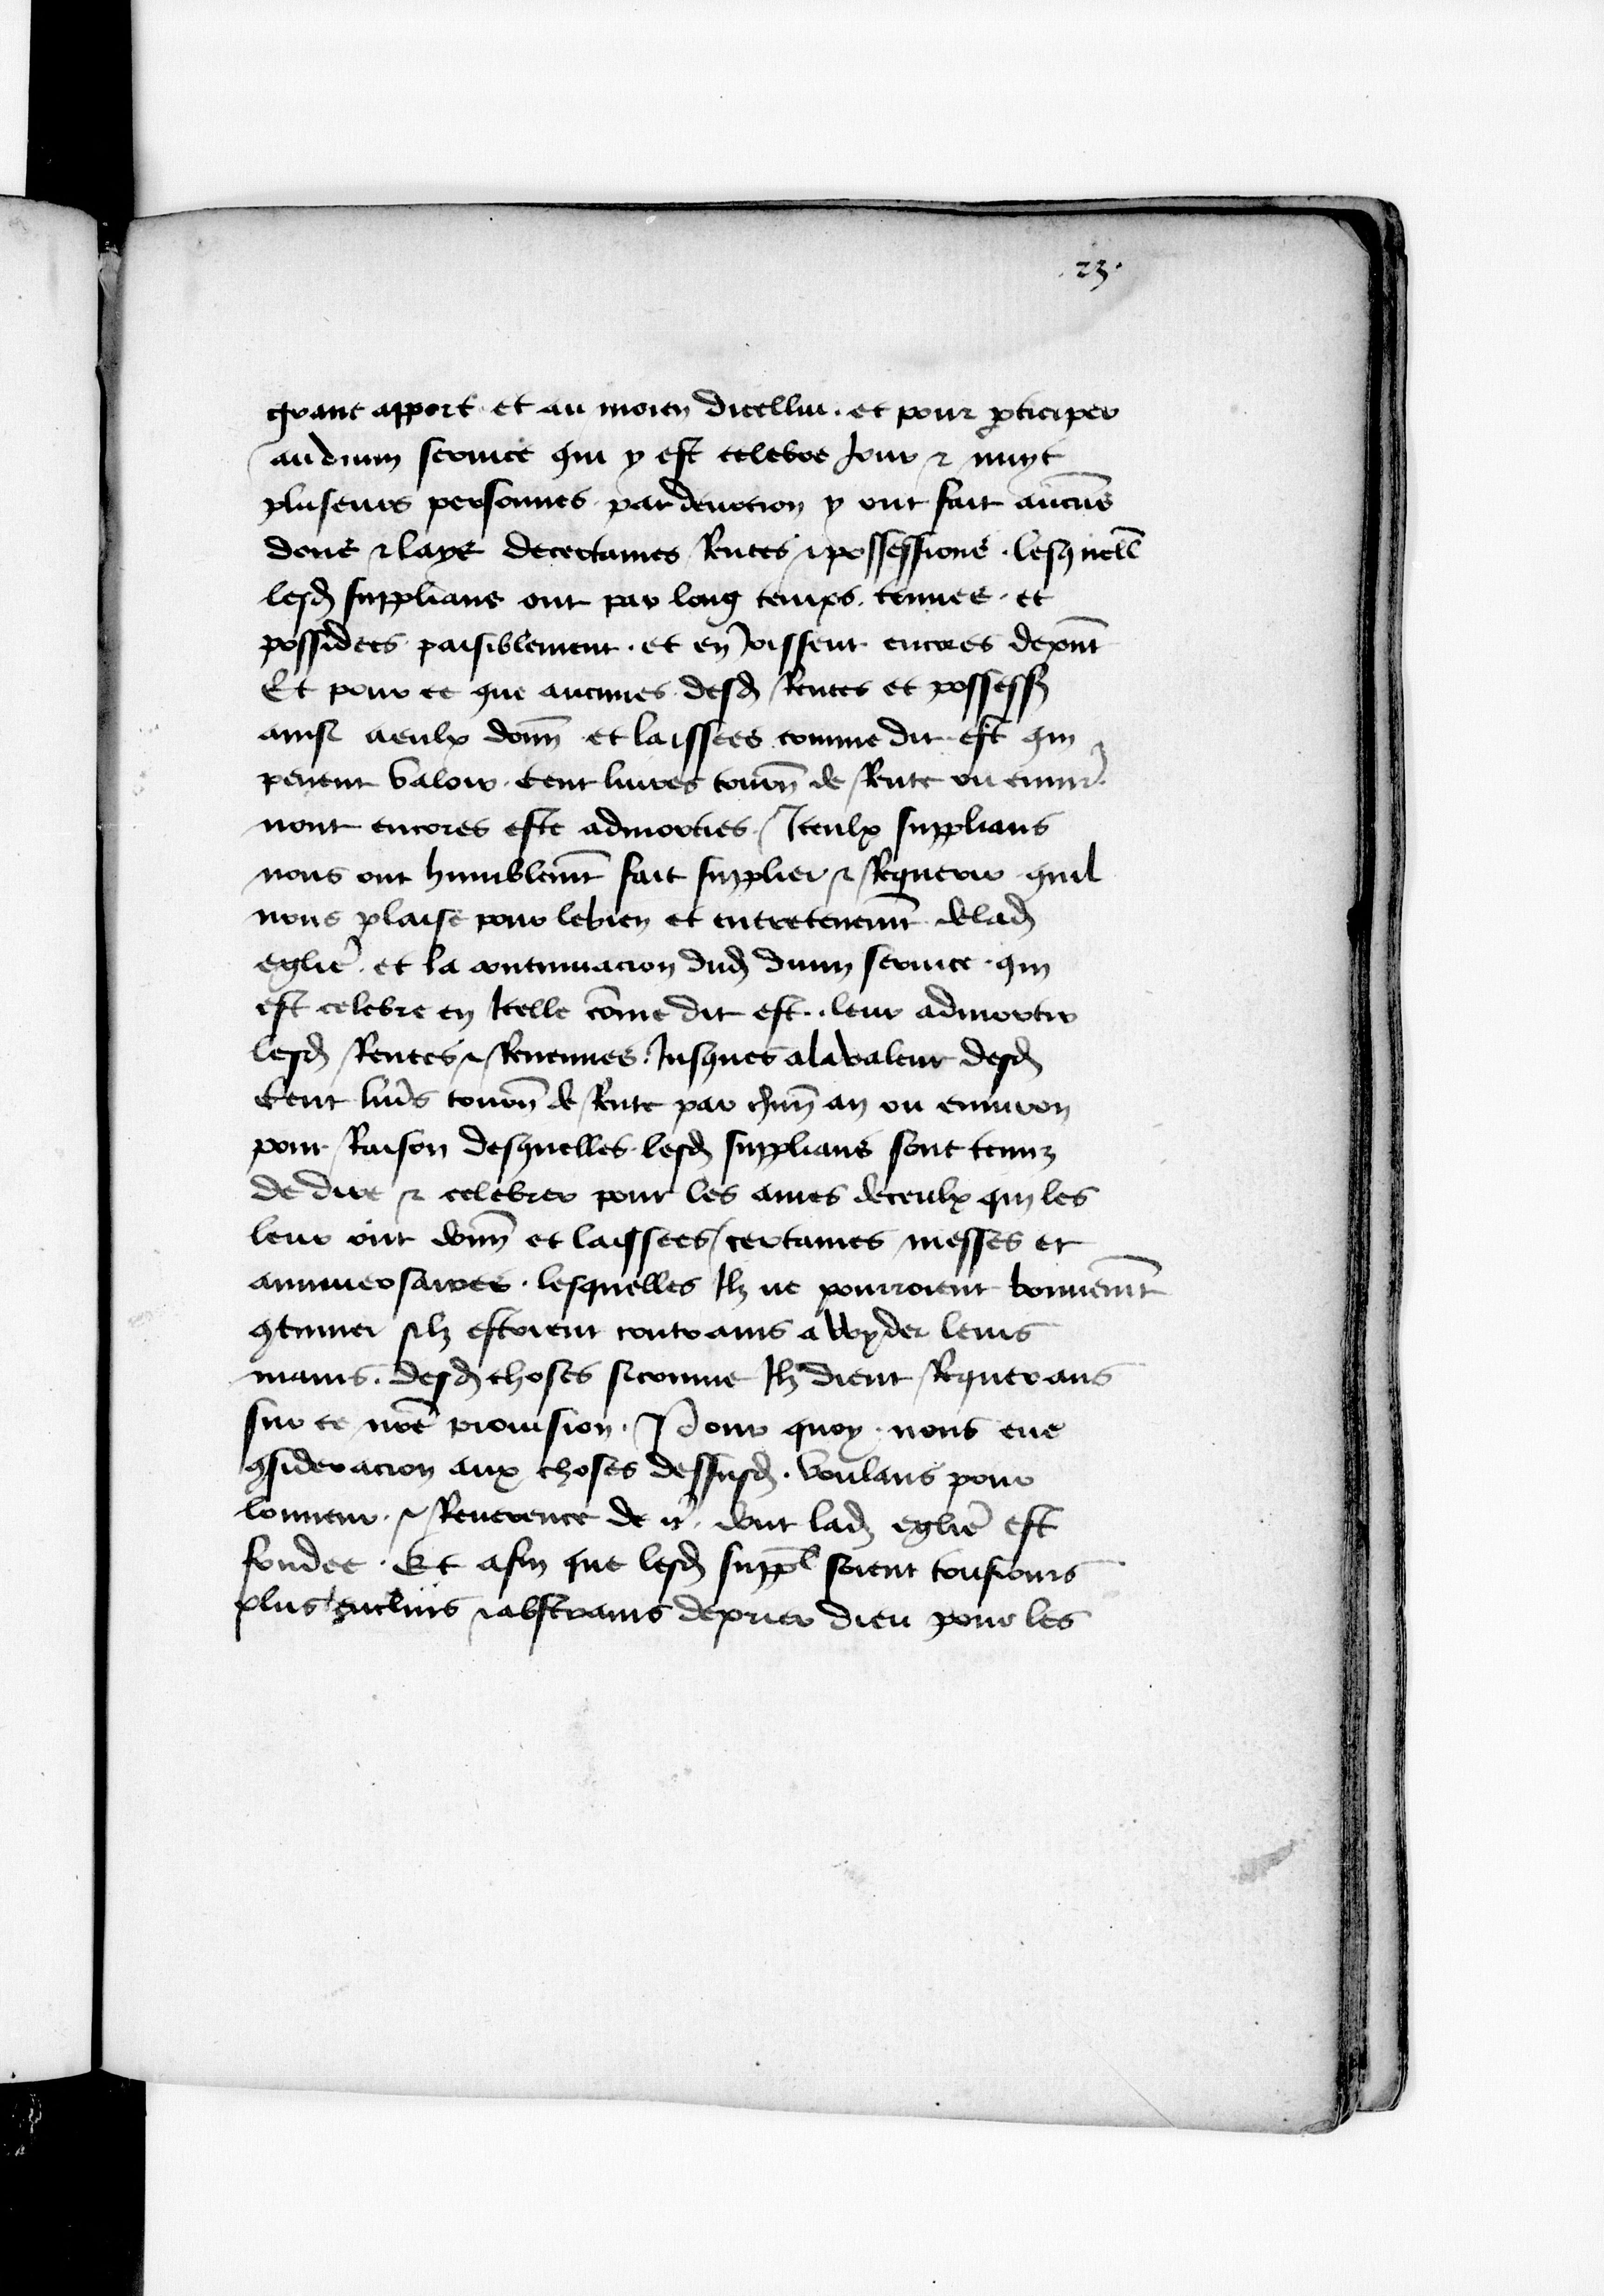 .23.
grant apport . et au moien dicellui . et pour p̱ticiper
au diuin seruice qui y est celebre Jour ⁊ nuyt
pluseurs personnes par deuocion y ont fait aucũs
dons ⁊ lays de certaines Rentes ⁊ possessions . lesquell̃
lesd̃ supplians ont par long temps . tenues . et
possidees paisiblement . et en Joissent encores de pñt
Et pour ce que aucunes desd̃ Rentes et possessñ
ainsi a eulx donñ et laissees comme dit est qui
peuent valoir . Cent liures tourñ de Rente ou enuir̃
nont encores este admorties . Iceulx supplians
nous ont humblemt̃ fait supplier ⁊ Requerir quil
nous plaise pour le bien et entretenemt̃ de lad̃
eglie̾ . et la continuacion dud̃ diuin seruice . qui
est celebre en Icelle cõme dit est . leur admortir
lesd̃ Rentes ⁊ Reuenues . Jusques a la valeur desd̃
Cent liur̾s tourñ de Rente par chũn an ou enuiron
pour Raison desquelles lesd̃ supplians sont tenuz
de dire ⁊ celebrer pour les ames de ceulx qui les
leur ont donñ et laissees / certaines messes et
anniuersaires . lesquelles Ilz ne pourroient bonnemt̃
ꝯtinuer silz estoient contrains a wyder leurs
mains . desd̃ choses si comme Ilz dient Requerans
sur ce nr̃e prouision . Pour quoy . nous eue
ꝯsideracion aux choses dessusd̃ . voulans pour
lonneur . ⁊ Reuerence de dont lad̃ eglie̾ est
fondee . Et afin que lesd̃ suppl̃ soient tousiours
plus enclins ⁊ abstrains de prier dieu pour les